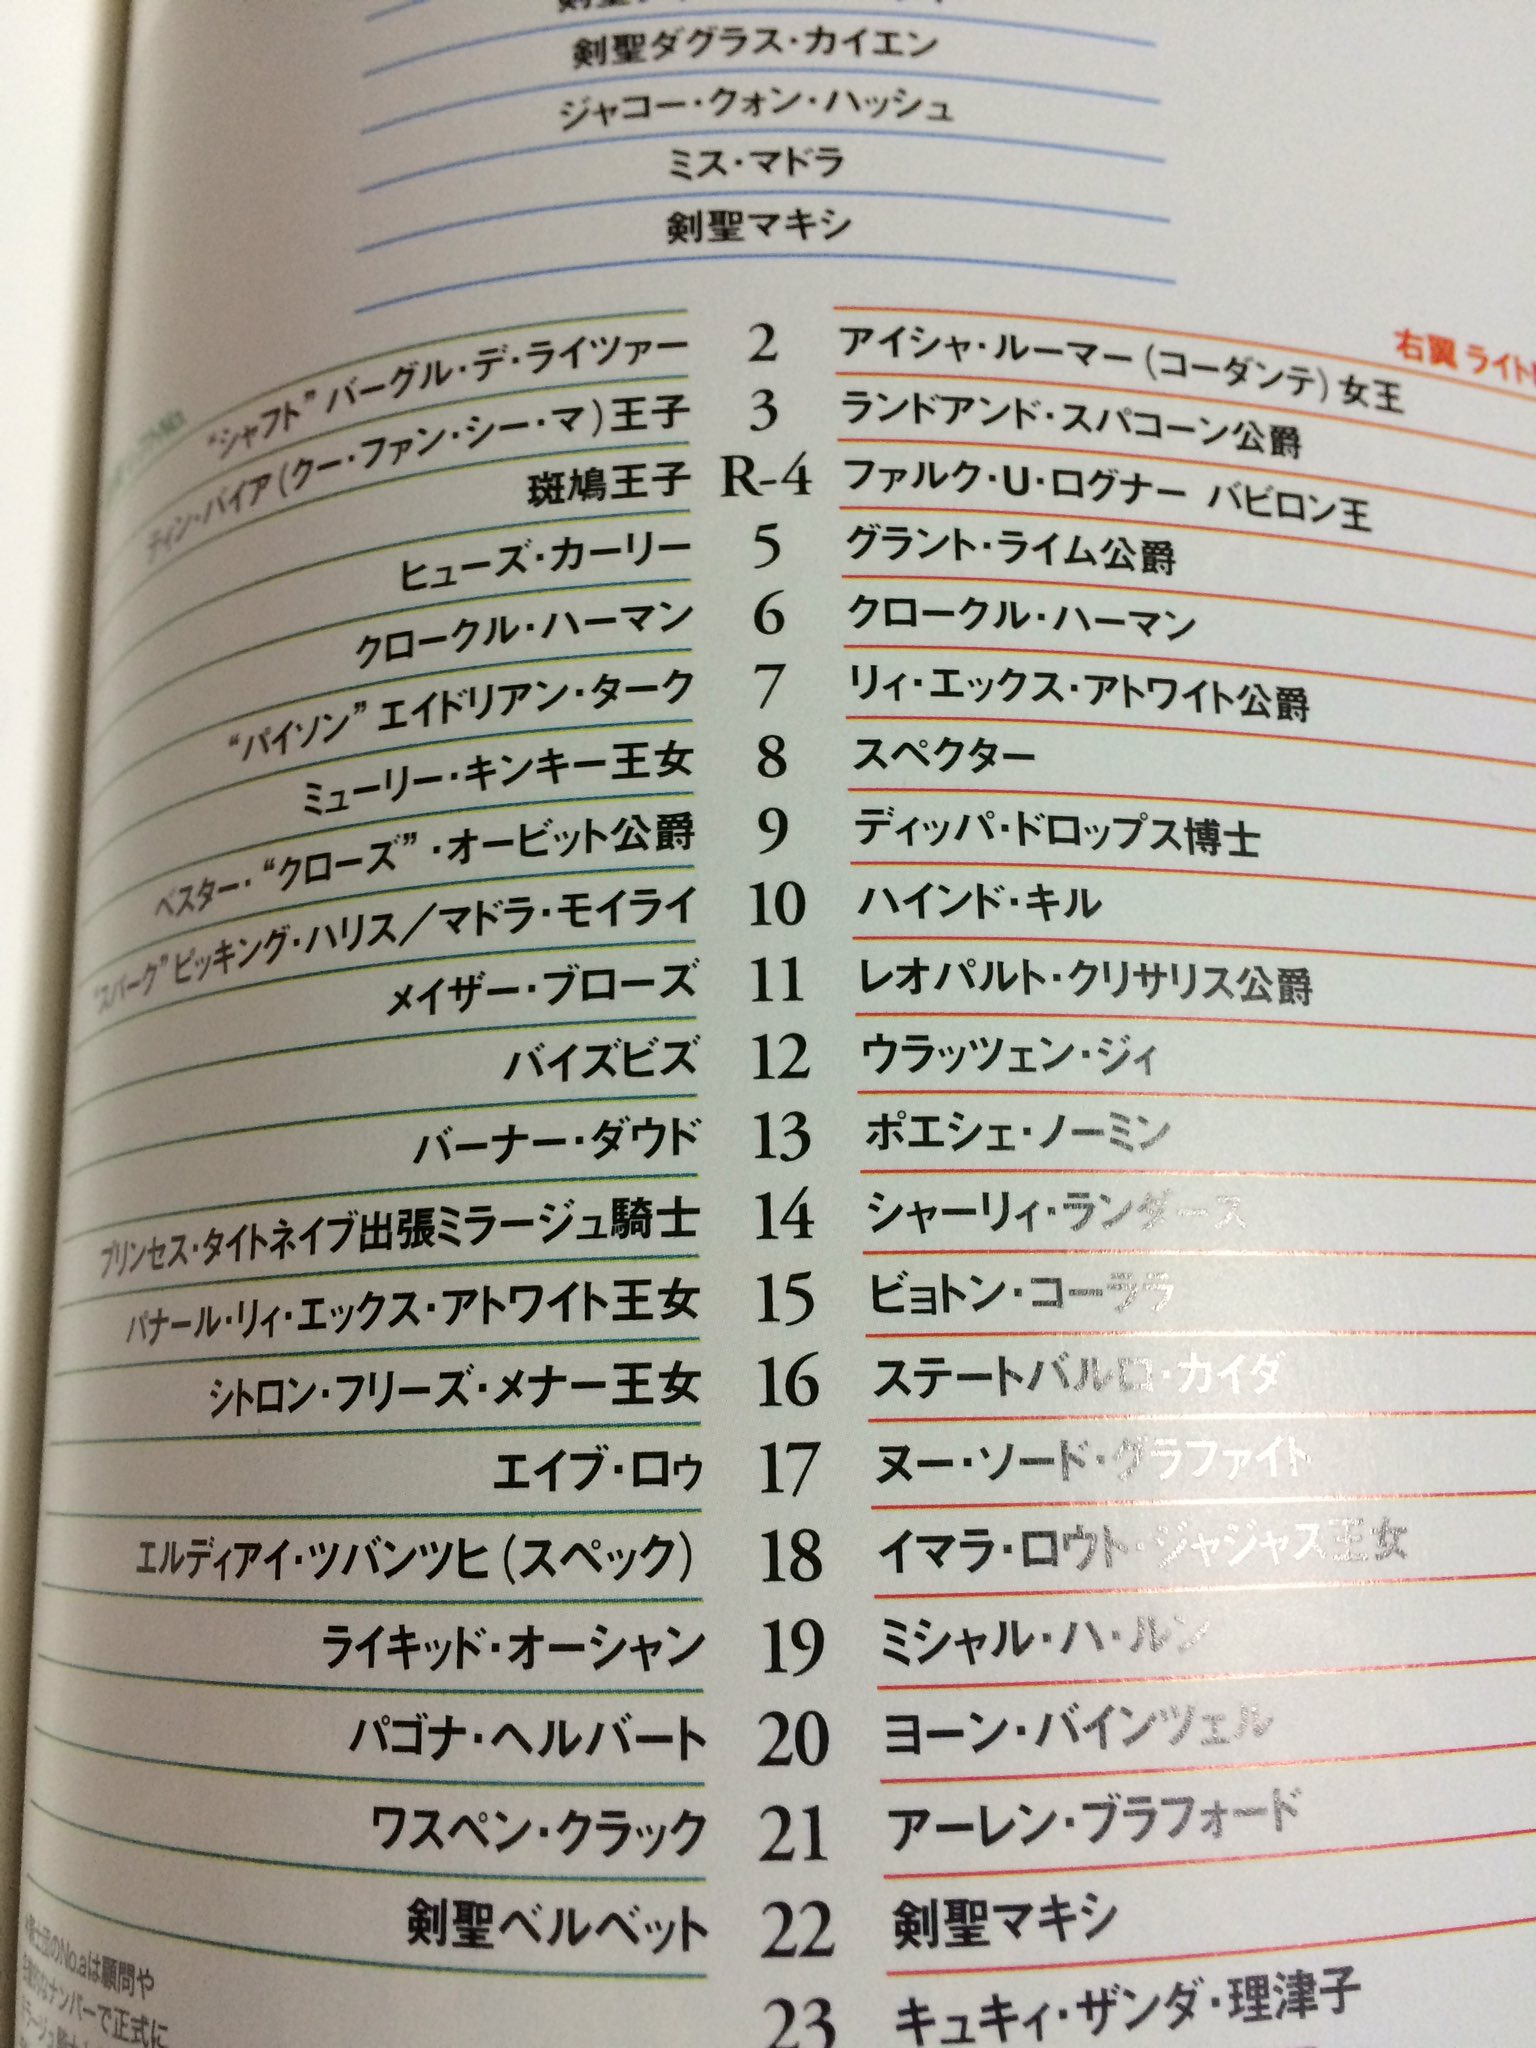 剣聖ダグラス・カイエン
ジャコー・クォン・ハッシュ
ミス・マドラ
剣聖マキシ
右翼 ライト
“シャフト” バーグル・デ・ライツァー 2 アイシャ・ルーマー (コーダンテ) 女王
ティン・バイア (クー・ファン・シー・マ) 王子 3 ランドアンド・スパコーン公爵
斑鳩王子 R-4 ファルク・U・ログナー バビロン王
ヒューズ・カーリー 5 グラント・ライム公爵
クロークル・ハーマン 6 クロークル・ハーマン
“パイソン” エイドリアン・ターク 7 リィ・エックス・アトワイト公爵
ミューリー・キンキー王女 8 スペクター
ベスター・“クローズ”・オービット公爵 9 ディッパ・ドロップス博士
“スパーク” ピッキング・ハリス／マドラ・モイライ 10 ハインド・キル
メイザー・ブローズ 11 レオパルト・クリサリス公爵
バイズビズ 12 ウラッツェン・ジィ
バーナー・ダウド 13 ポエシェ・ノーミン
プリンセス・タイトネイブ出張ミラージュ騎士 14 シャーリィ・ランダース
パナール・リィ・エックス・アトワイト王女 15 ビョトン・コーララ
シトロン・フリーズ・メナー王女 16 ステートバルロ・カイダ
エイブ・ロゥ 17 ヌー・ソード・グラファイト
エルディアイ・ツバンツヒ (スペック) 18 イマラ・ロウト・ジャジャス王女
ライキッド・オーシャン 19 ミシャル・ハ・ルン
パゴナ・ヘルバート 20 ヨーン・バインツェル
ワスペン・クラック 21 アーレン・ブラフォード
剣聖ベルベット 22 剣聖マキシ
23 キュキィ・ザンダ・理津子
士団のNo.aは顧問や
なナンバーで正式に